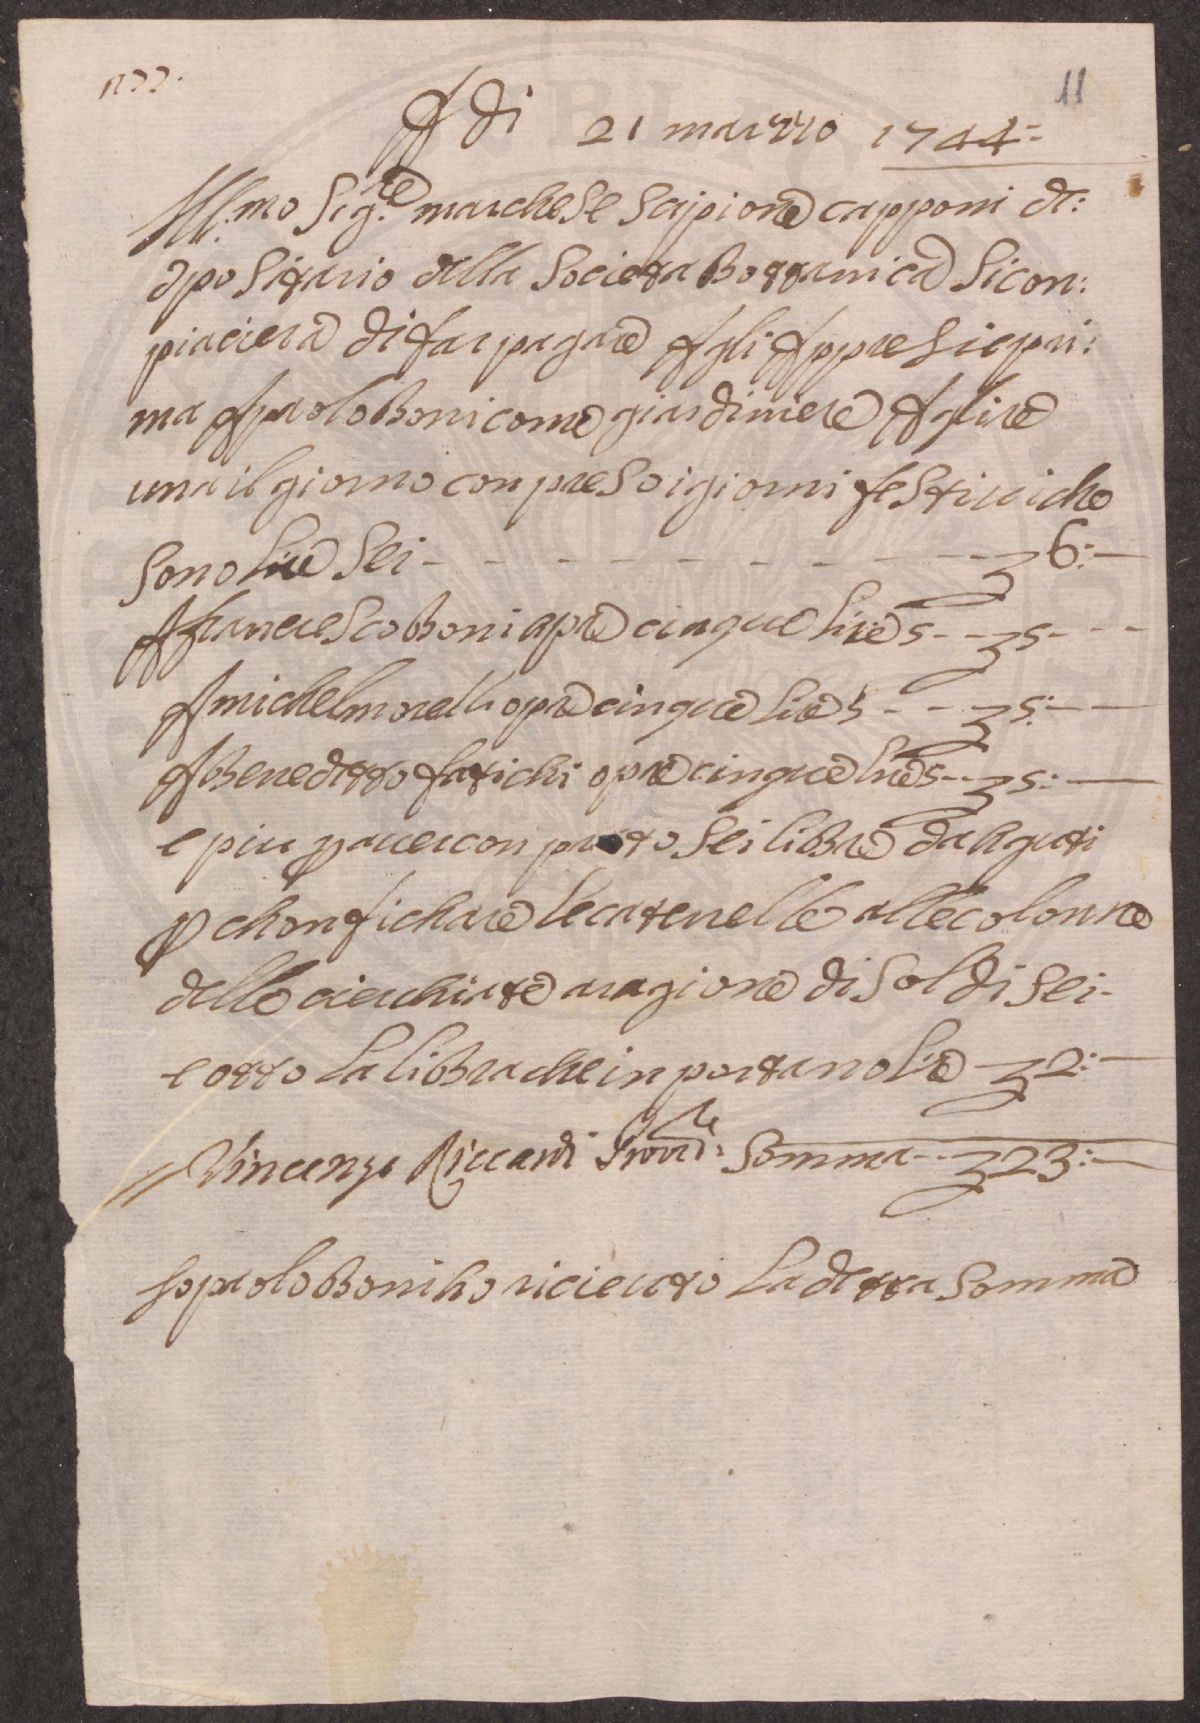 n 77.
11
A di 21 marzzo 1744:
Ill:mo Sig:re marchese Scipione capponi de:
posittario della Societta Bottanica Si con:
piaciera di far pagare A gli Appresie pri:
ma A paolo Boni come giardiniere A Lire
una il giorno conpreso i giorni festiui che
Sono Lire Sei - - - - - - - - - 6:-
A francesco Boni opre cinque Lire 5 - - 5 - - -
A michel morelli opre cinque Lire 5 - - 5: - -
A Benedetto fatichi opre cinque Lire 5 - - 5: -
e piu p auer conprato Sei libbre d agutti
p chonfichare le catenelle alle colonne
delle cierchiate a ragione di Soldi Sei
e otto La libbra che inportano Lire 2: -
Vincenzo Riccardi Provd:re Somma - - 23: -
Io paolo Boni ho riceuuto La detta Somma